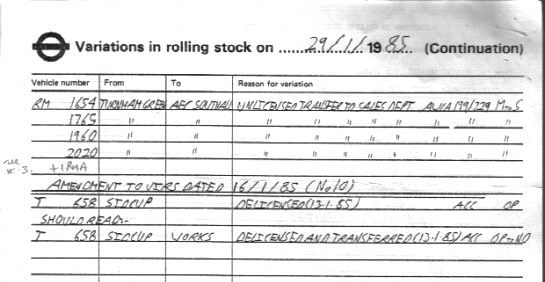 Variations in rolling stock on 29/1/ 1985. (Continuation)
Vehicle number From To Reason for variation
RM 1654 TURNHAM GREEN AEC SOUTHALL UNLICENSED TRANSFER TO SALES DEPT AWA 199/729 M to S
1765 " " " " " " " " "
1960 " " " " " " " " "
2020 " " " " " " " " "
AMENDMENT TO VIRS DATED 16/1/85 (No10)
T 658 SIDCUP DELICENSED (13-1-85) ACC OP
SHOULD READ:-
T 658 SIDCUP WORKS DELICENSED AND TRANSFERRED (13-1-85) ACC OP to NO